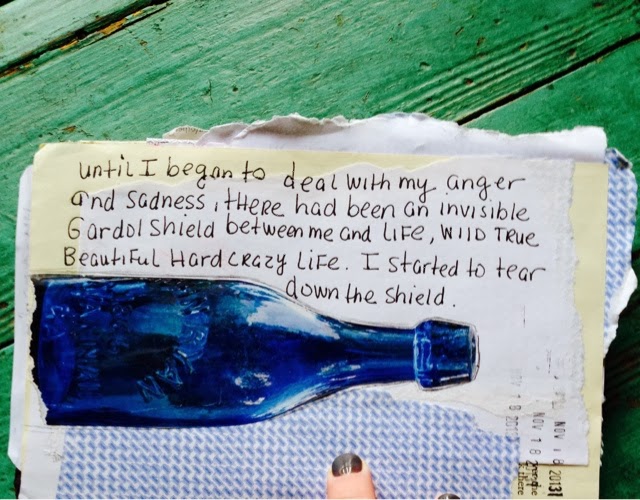 until I began to deal with my anger
and sadness, there had been an invisible
Gardol Shield between me and Life, Wild True
Beautiful Hard crazy Life. I started to tear
down the shield.
NOV 18 2013
NOV 18 2013